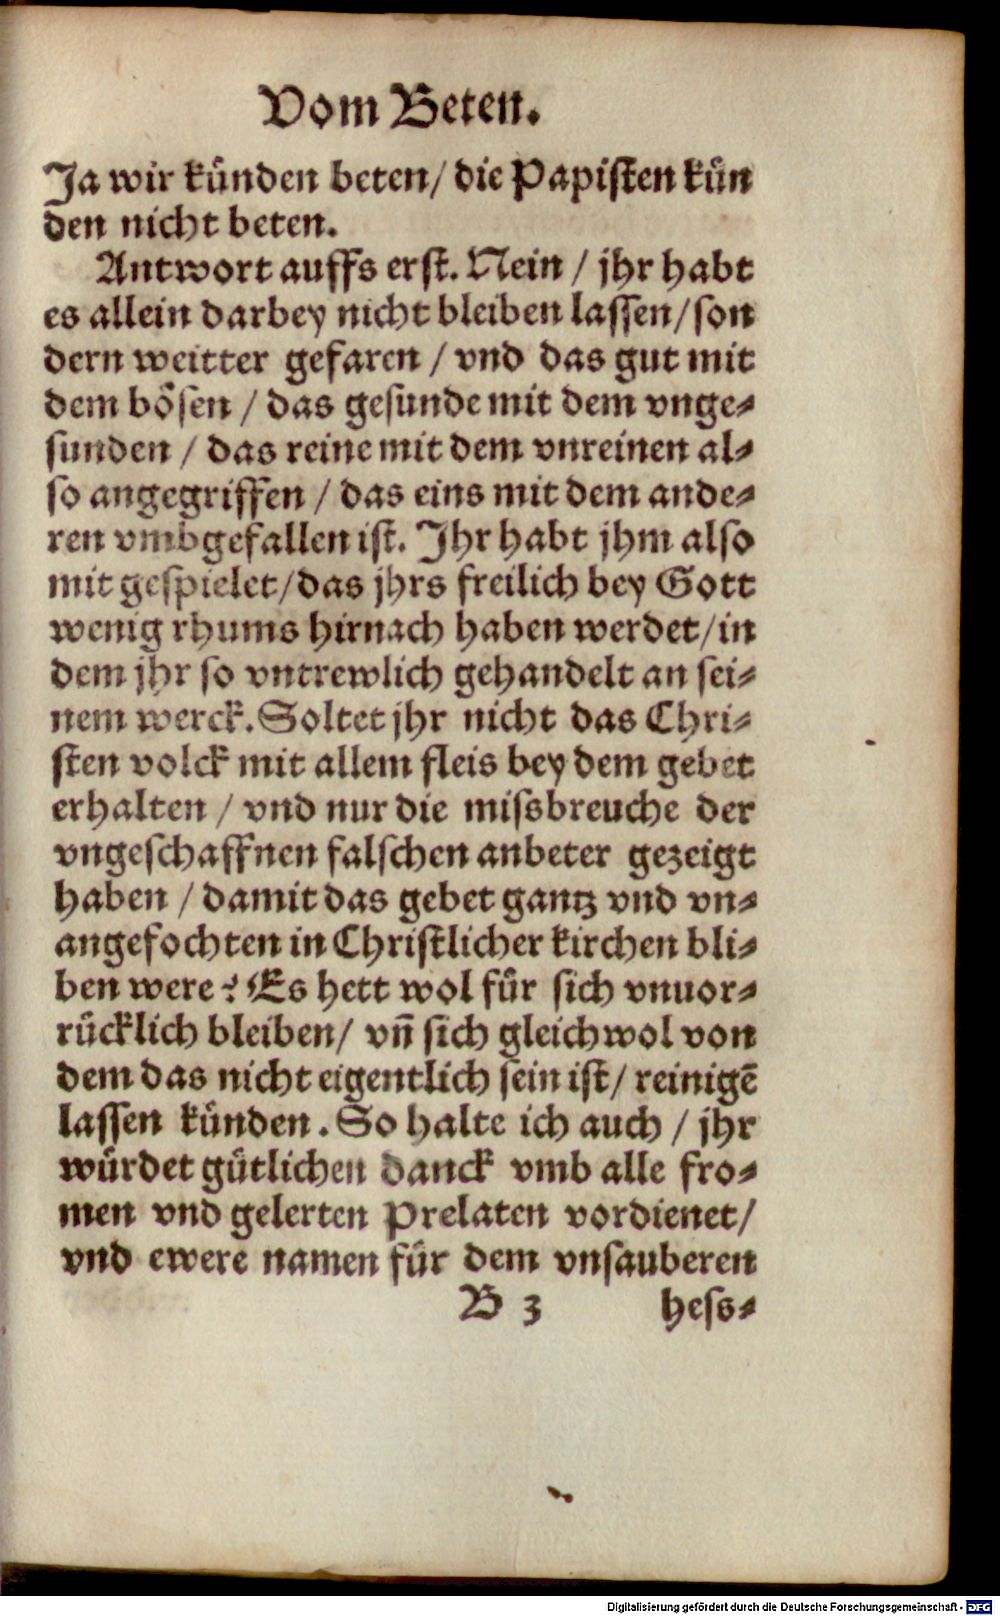 Vom Beten.
Ja wir künden beten/ die Papisten kün
den nicht beten.
Antwort auffs erst. Nein / jhr habt
es allein darbey nicht bleiben lassen/son
dern weitter gefaren / vnd das gut mit
dem bösen / das gesunde mit dem vnge⸗
sunden / das reine mit dem vnreinen al⸗
so angegriffen / das eins mit dem ande⸗
ren vmbgefallen ist. Ihr habt jhm also
mit gespielet/das jhrs freilich bey Gott
wenig rhums hirnach haben werdet/in
dem jhr so vntrewlich gehandelt an sei⸗
nem werck. Soltet jhr nicht das Chri⸗
sten volck mit allem fleis bey dem gebet
erhalten / vnd nur die missbreuche der
vngeschaffnen falschen anbeter gezeigt
haben / damit das gebet gantz vnd vn⸗
angefochten in Christlicher kirchen bli⸗
ben were? Es hett wol für sich vnuor⸗
rücklich bleiben/ vn̄ sich gleichwol von
dem das nicht eigentlich sein ist/ reinigē
lassen künden. So halte ich auch / jhr
würdet gütlichen danck vmb alle fro⸗
men vnd gelerten Prelaten vordienet/
vnd ewere namen für dem vnsauberen
B 3 hess⸗
Digitalisierung gefördert durch die Deutsche Forschungsgemeinschaft - DFG